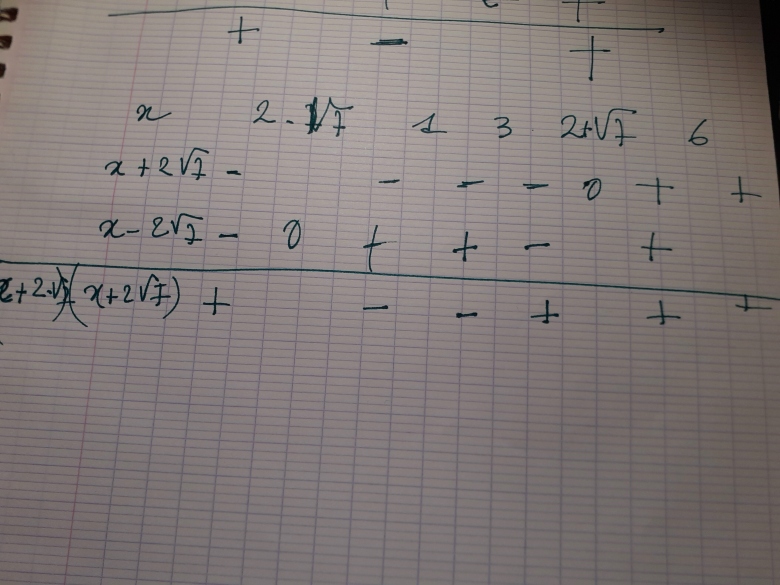 + − +
x 2-√7 1 3 2+√7 6
x+2√7 − − − − 0 + +
x-2√7 − 0 + + − +
x+2√7)(x+2√7) + − − + + +